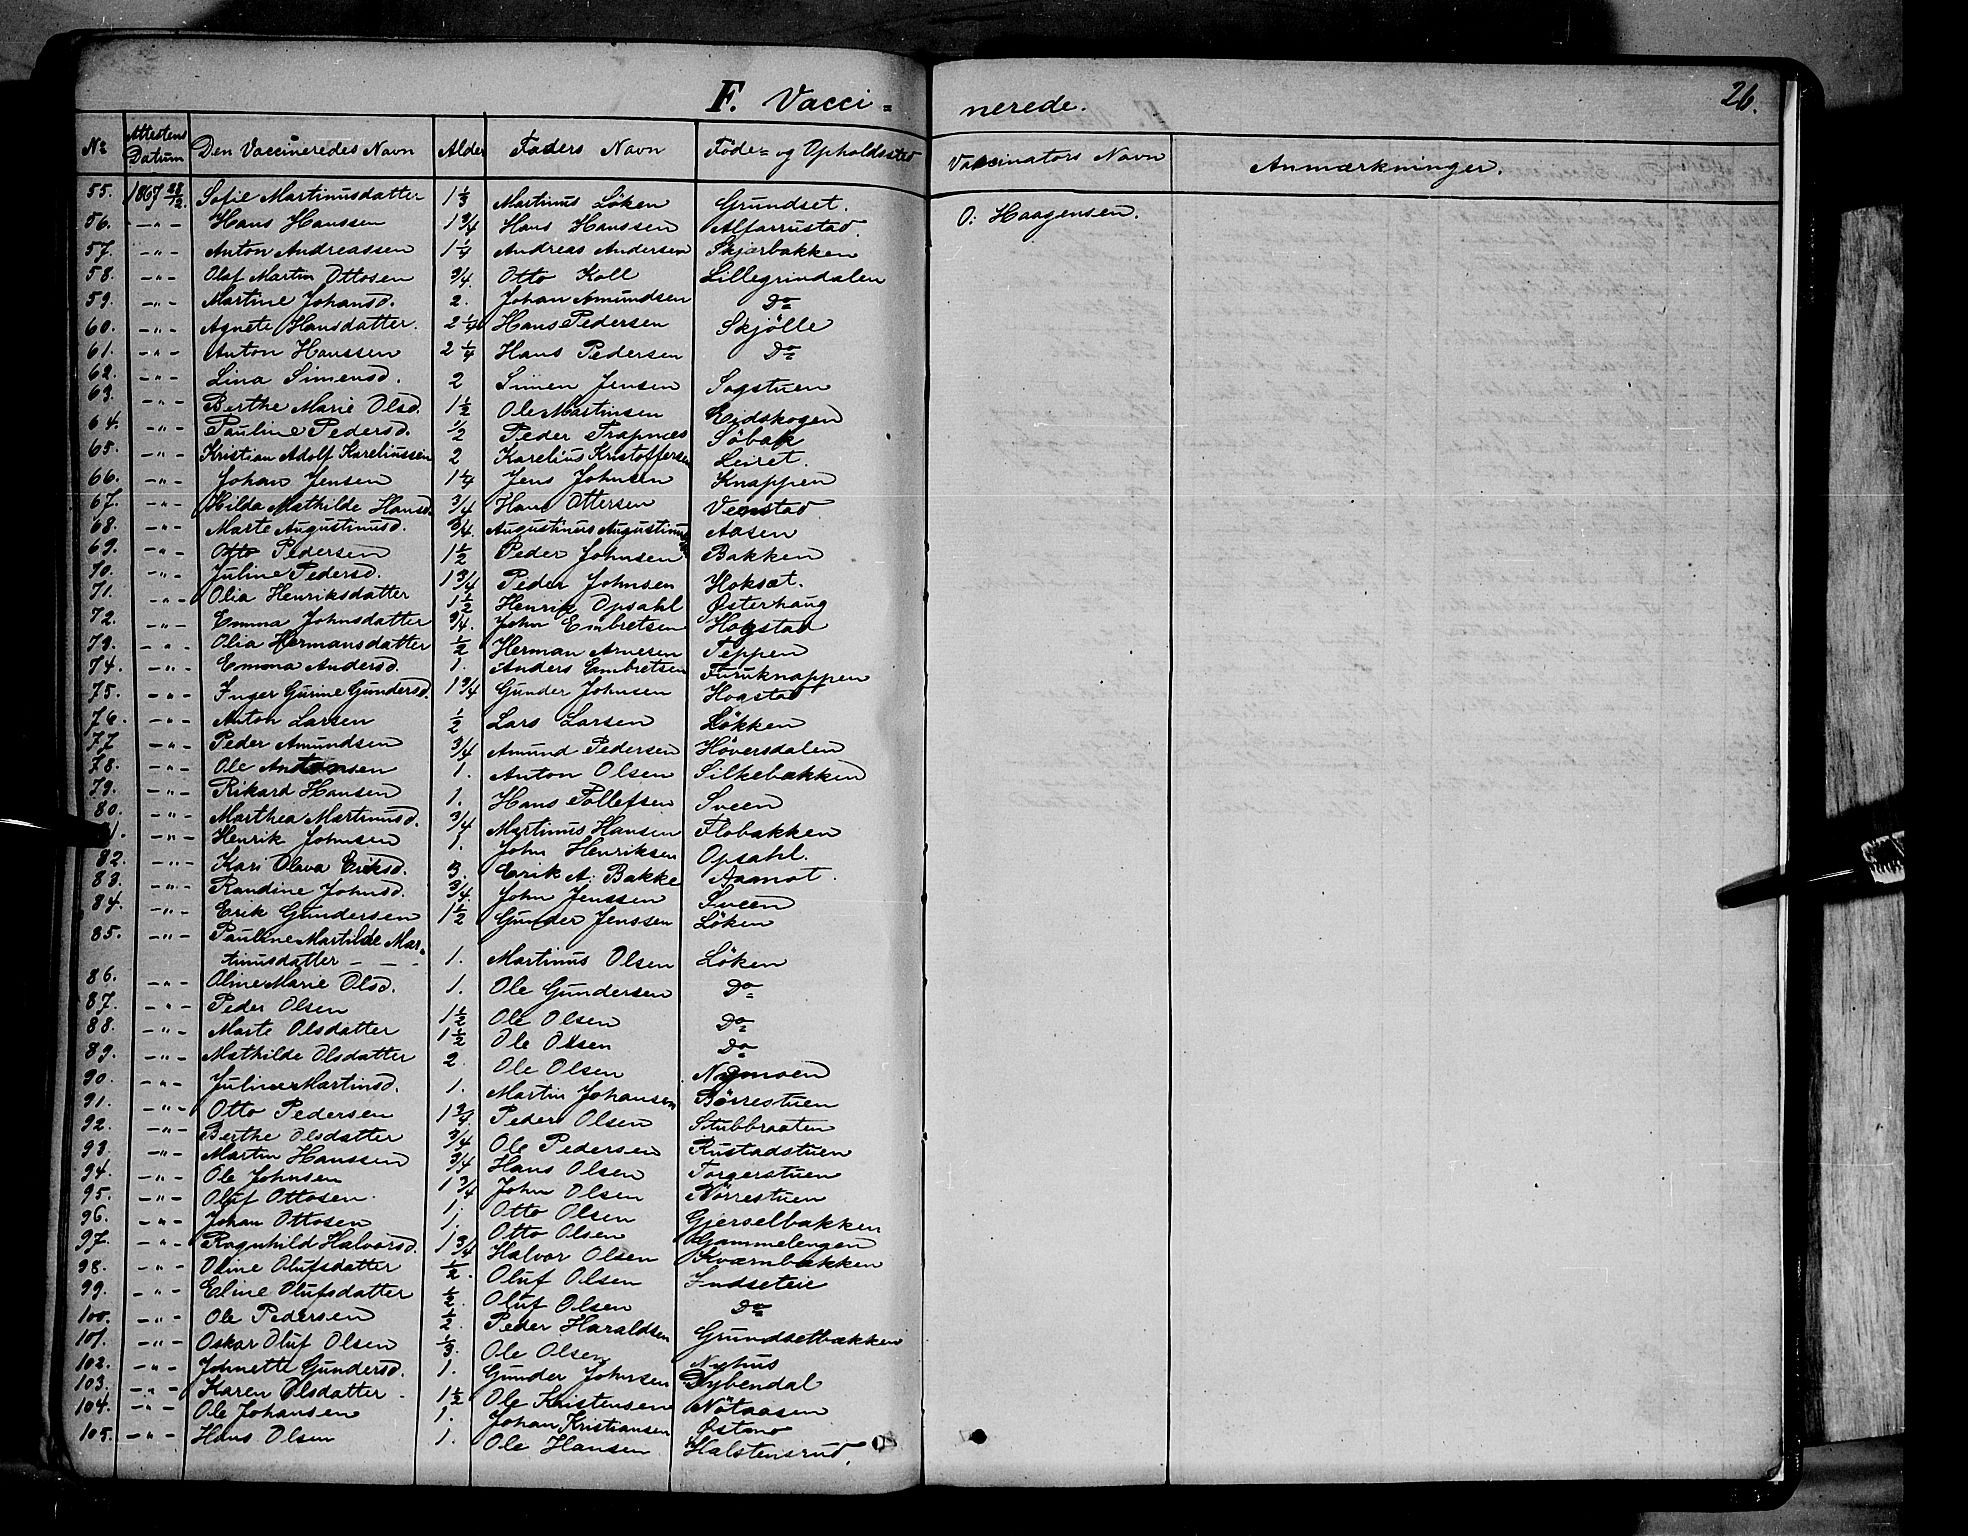 F. Vacci=
nerede.
26.
No Attestens Datum Den Vaccineredes Navn Alder Faders Navn Føde= og Opholdssted Vaccinators Navn Anmærkninger.
55. 1867 28/12. Sofie Martinusdatter 1 1/3 Martinus Löken Grundset. O. Haagensen.
56. -"- Hans Hanssen 1 3/4 Hans Hanssen Alfarrustad.
57. -"- Anton Andreassen 1 1/4 Andreas Andersen Skjærbakken
58. -"- Olaf Martin Ottosen 3/4. Otto Koll Lillegrindalen
59. -"- Martine Johansd. 2. Johan Amundsen Do
60. -"- Agnete Hansdatter. 2 1/4 Hans Pedersen Skjölle
61. -"- Anton Hanssen 2 1/4 Hans Pedersen Do
62. -"- Lina Simensd. 2 Simen Jensen Sagstuen
63. -"- Berthe Marie Olsd. 1 1/2 Ole Martinsen Eidskogen
64. -"- Pauline Pedersd. 1/2 Peder Trapnæs Söbak
65. -"- Kristian Adolf Kareliussen 2 Karelius Kristoffersen Leiret.
66. -"- Johan Jensen 1 1/4 Jens Johnsen Knappen
67. -"- Hilda Mathilde Hansd. 3/4 Hans Ottersen Venstad
68. -"- Marte Augustinusd. 3/4. Augustinus Augustinus Aasen
69. -"- Otto Pedersen 1 1/2 Peder Johnsen Bakken
70. -"- Juline Pedersd. 1 3/4 Peder Johnsen Hoksæt.
71. -"- Olia Henriksdatter 1 1/2 Henrik Opsahl Østerhaug
72. -"- Emma Johnsdatter 3/4. John Embretsen Hogstad
73. -"- Olia Hermansdatter 1/2 Herman Arnesen Teppen
74. -"- Emma Andersd. 1. Anders Embretsen Furuknappen
75. -"- Inger Gurine Gundersd. 1 3/4 Gunder Johnsen Hogstad
76. -"- Anton Larsen 1/2 Lars Larsen Løkken
77. -"- Peder Amundsen 3/4 Amund Pedersen Höversdalen
78. -"- Ole Antonsen 1. Anton Olsen Silkebækken
79. -"- Rikard Hansen 1. Hans Tollefsen Sveen
80. -"- Marthea Martinusd. 3/4 Martinus Hansen Flobakken
81. -"- Henrik Johnsen 1. John Henriksen Opsahl.
82. -"- Kari Olava Eriksd. 3. Erik A. Bakke Aamot.
83. -"- Randine Johnsd. 3/4. John Jenssen Sveen
84. -"- Erik Gundersen 1 1/2 Gunder Jenssen Löken
85. -"- Pauline Martilde Mar=
tinusdatter - - - 1. Martinus Olsen Löken
86. -"- Oline Marie Olsd. 1. Ole Gundersen Do
87. -"- Peder Olsen 1 1/2 Ole Olsen Do
88. -"- Marte Olsdatter 1 1/2 Ole Olsen Do
89. -"- Mathilde Olsdatter 2. Ole Olsen Nymoen
90. -"- Juline Martinsd. 1. Martin Johansen Börrestuen
91. -"- Otto Pedersen 1 3/4. Peder Olsen Stubbraaten
92. -"- Berthe Olsdatter 3/4 Ole Pedersen Rustadstuen
93. -"- Martin Hanssen 3/4 Hans Olsen Torgerstuen
94. -"- Ole Johnsen 1 3/4 John Olsen Nörrestuen
95. -"- Oluf Ottosen. 1. Otto Olsen Gjerselbakken
96. -"- Johan Ottosen 1. Otto Olsen Gammelengen
97. -"- Ragnhild Halvorsd. 1 3/4 Halvor Olsen Kværnbækken
98. -"- Oline Olufsdatter 1/2. Oluf Olsen Indseteie
99. -"- Eline Olufsdatter 1/2. Oluf Olsen Do
100. -"- Ole Pedersen 1/2. Peder Haraldsen Grundsetbækken
101. -"- Oskar Oluf Olsen 1/3. Ole Olsen Nyhus
102. -"- Johnette Gundersd. 1. Gunder Johnsen Dybendal
103. -"- Karen Olsdatter 1 1/2 Ole Kristensen Nötaasen
104. -"- Ole Johansen 1. Johan Kristiansen Østmo
105. -"- Hans Olsen 1. Ole Hansen Halstensrud.